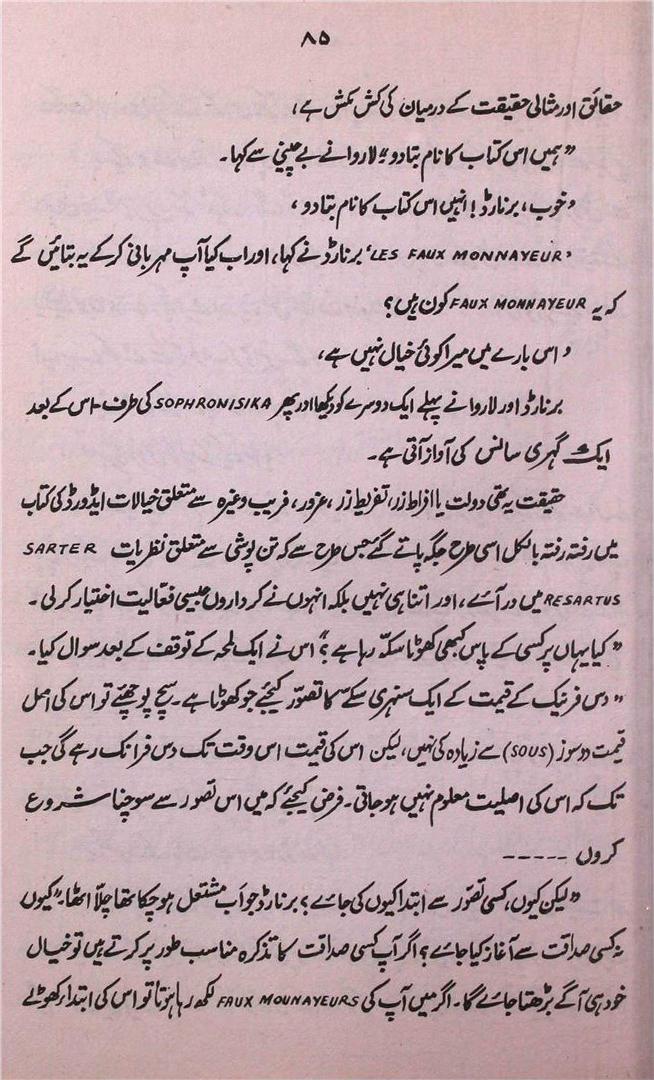 ۸۵
حقائق اور مثالی حقیقت کے درمیان کی کش مکش ہے،
”ہمیں اس کتاب کا نام بتا دو“ لاروا نے بے چینی سے کہا۔
’خوب، برنارڈ! انہیں اس کتاب کا نام بتا دو،
’LES FAUX MONNAYEUR‘ برنارڈ نے کہا، اور اب کیا آپ مہربانی کر کے یہ بتائیں گے
کہ یہ FAUX MONNAYEUR کون ہیں؟
’اس بارے میں میرا کوئی خیال نہیں ہے،
برنارڈ اور لاروا نے پہلے ایک دوسرے کو دیکھا اور پھر SOPHRONISIKA کی طرف۔ اس کے بعد
ایک گہری سانس کی آواز آتی ہے۔
حقیقت یہ تھی دولت یا افراط زر، تفریط زر، غرور، فریب وغیرہ سے متعلق خیالات ایڈورڈ کی کتاب
میں رفتہ رفتہ بالکل اسی طرح جگہ پاتے گئے جس طرح سے کہ تن پوشی سے متعلق نظریات SARTER
RESARTUS میں در آئے، اور اتنا ہی نہیں بلکہ انہوں نے کرداروں جیسی فعالیت اختیار کر لی۔
”کیا یہاں پر کسی کے پاس کبھی کھوٹا سکہ رہا ہے؟“ اس نے ایک لمحہ کے توقف کے بعد سوال کیا۔
”دس فرینک کے قیمت کے ایک سنہری سکے کا تصور کیجئے جو کھوٹا ہے۔ سچ پوچھئے تو اس کی اصل
قیمت دو سوز (SOUS) سے زیادہ کی نہیں، لیکن اس کی قیمت اس وقت تک دس فرانک رہے گی جب
تک کہ اس کی اصلیت معلوم نہیں ہو جاتی۔ فرض کیجئے کہ میں اس تصور سے سوچنا شروع
کروں -----
”لیکن کیوں، کسی تصور سے ابتدا کیوں کی جائے؟ برنارڈ جو اب مشتعل ہو چکا تھا چلا اٹھا۔ ”کیوں
نہ کسی صداقت سے آغاز کیا جائے؟ اگر آپ کسی صداقت کا تذکرہ مناسب طور پر کرتے ہیں تو خیال
خود ہی آگے بڑھتا جائے گا۔ اگر میں آپ کی FAUX MOUNAYEURS لکھ رہا ہوتا تو اس کی ابتدا کھوٹے